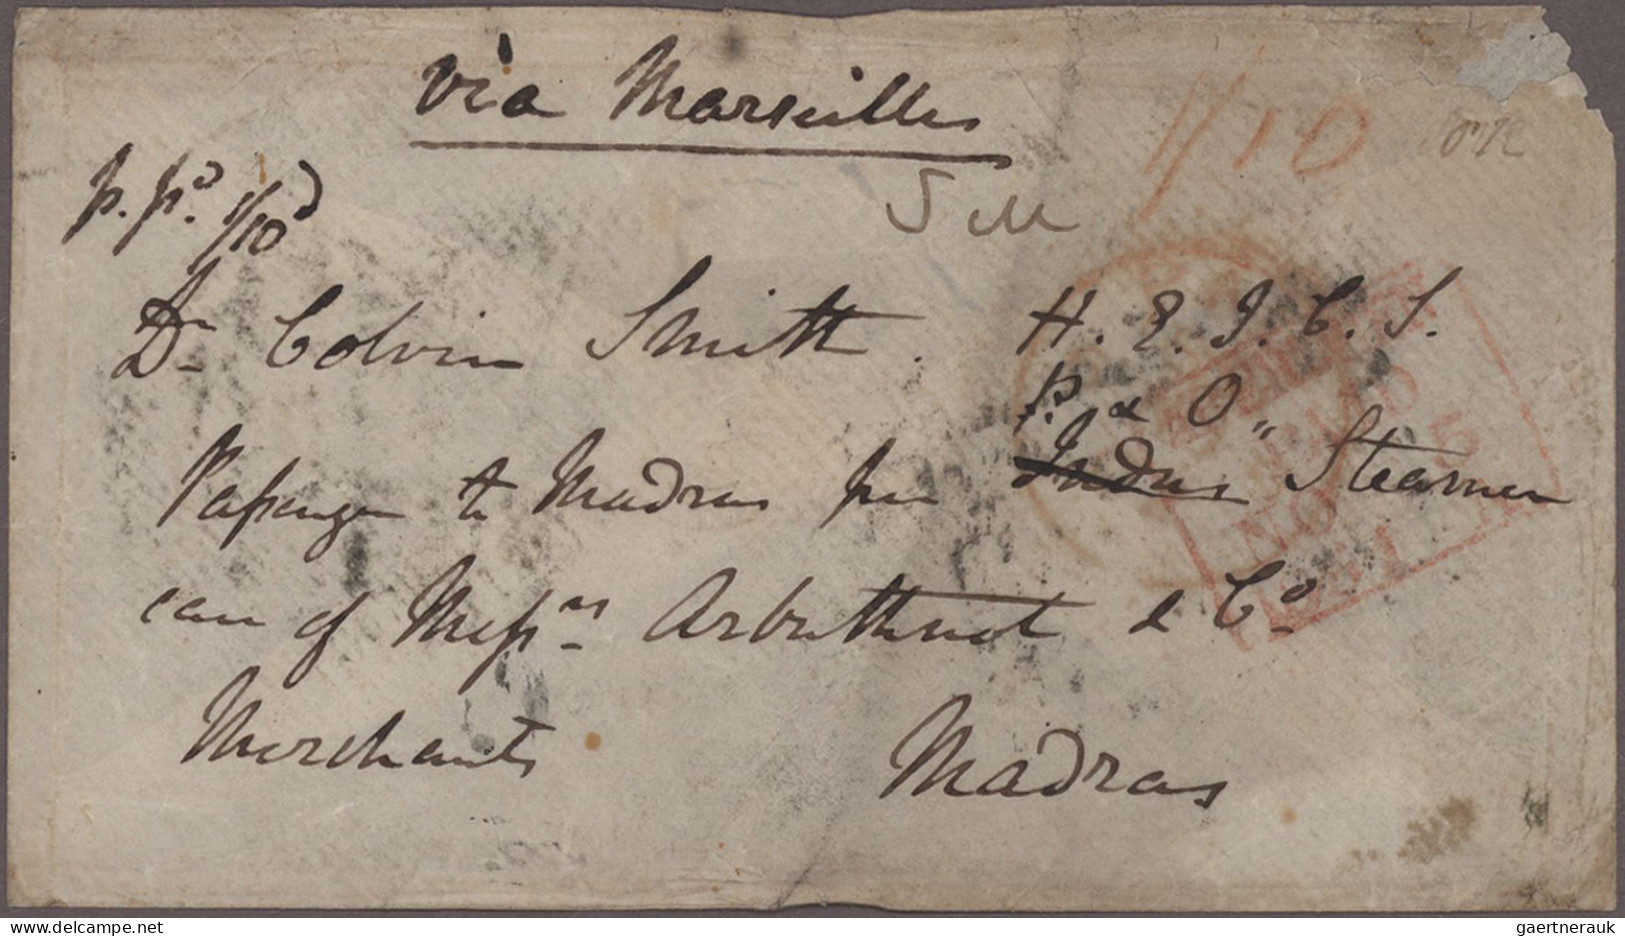 via Marseilles
1/10
p. pd. 1/10d
Dr Colvin Smith. H. E. I. C. S.
P. & O
Passenger to Madras per Indus Steamer
care of Messrs Arbuthnot & Co
Merchants Madras
PAID
NO
gaertnerauk